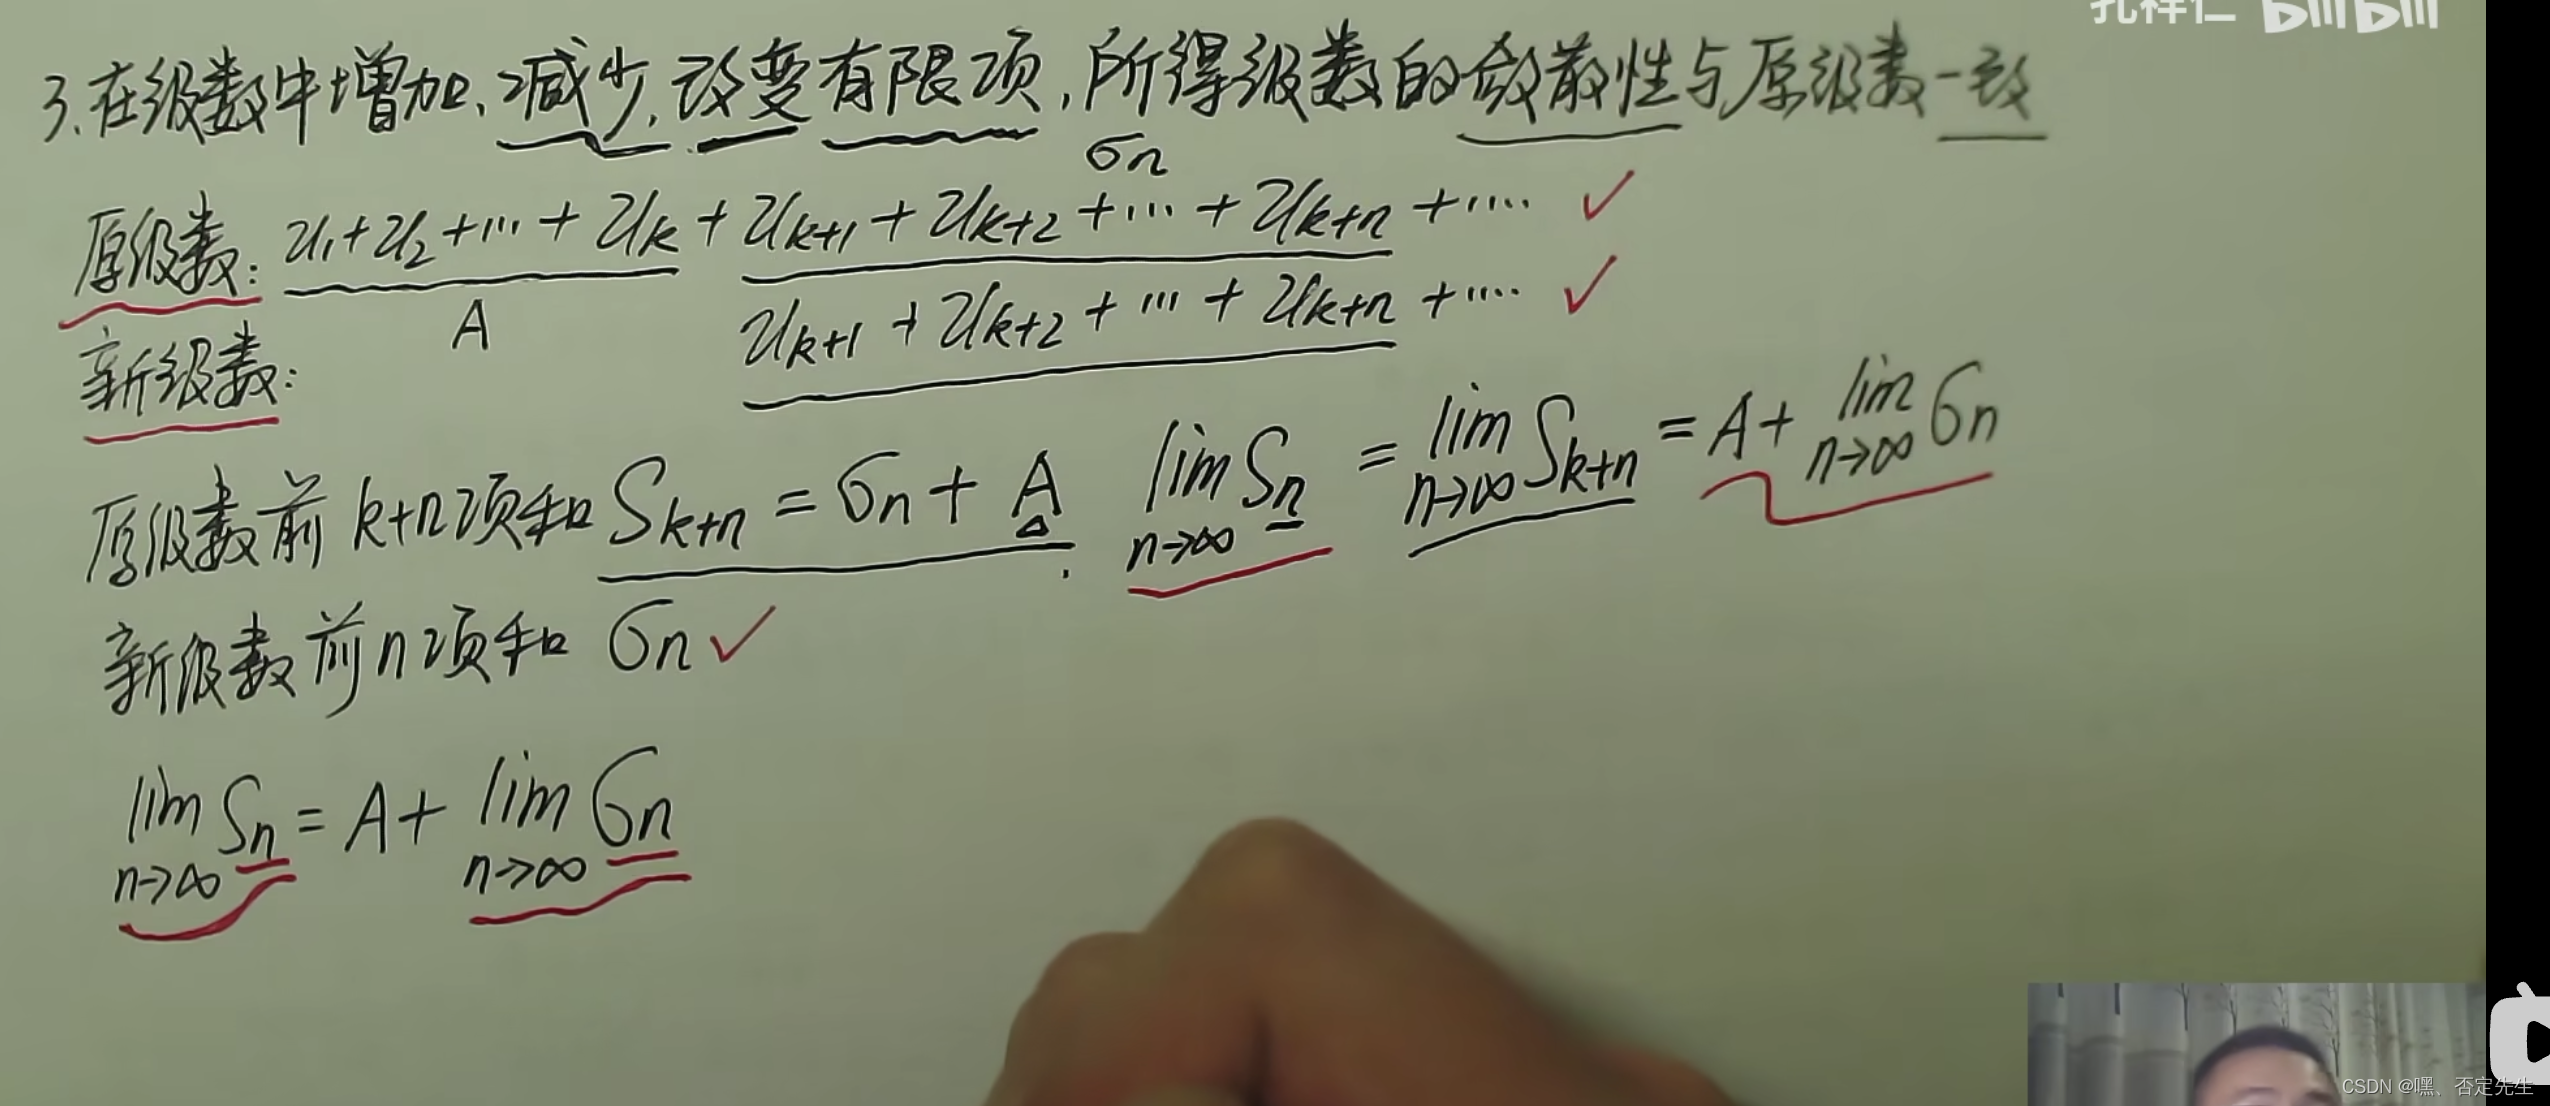 孔祥仁 bilibili
3.在级数中增加、减少.改变有限项,所得级数的敛散性与原级数一致
σn
原级数: u₁+u₂+…+uₖ+uₖ₊₁+uₖ₊₂+…+uₖ₊ₙ+…. ✓
A
新级数: uₖ₊₁+uₖ₊₂+…+uₖ₊ₙ+…. ✓
原级数前k+n项和 Sₖ₊ₙ=σn+A lim n→∞ Sn = lim n→∞ Sₖ₊ₙ = A+ lim n→∞ σn
新级数前n项和 σn ✓
lim n→∞ Sn = A+ lim n→∞ σn
CSDN @嘿、否定先生